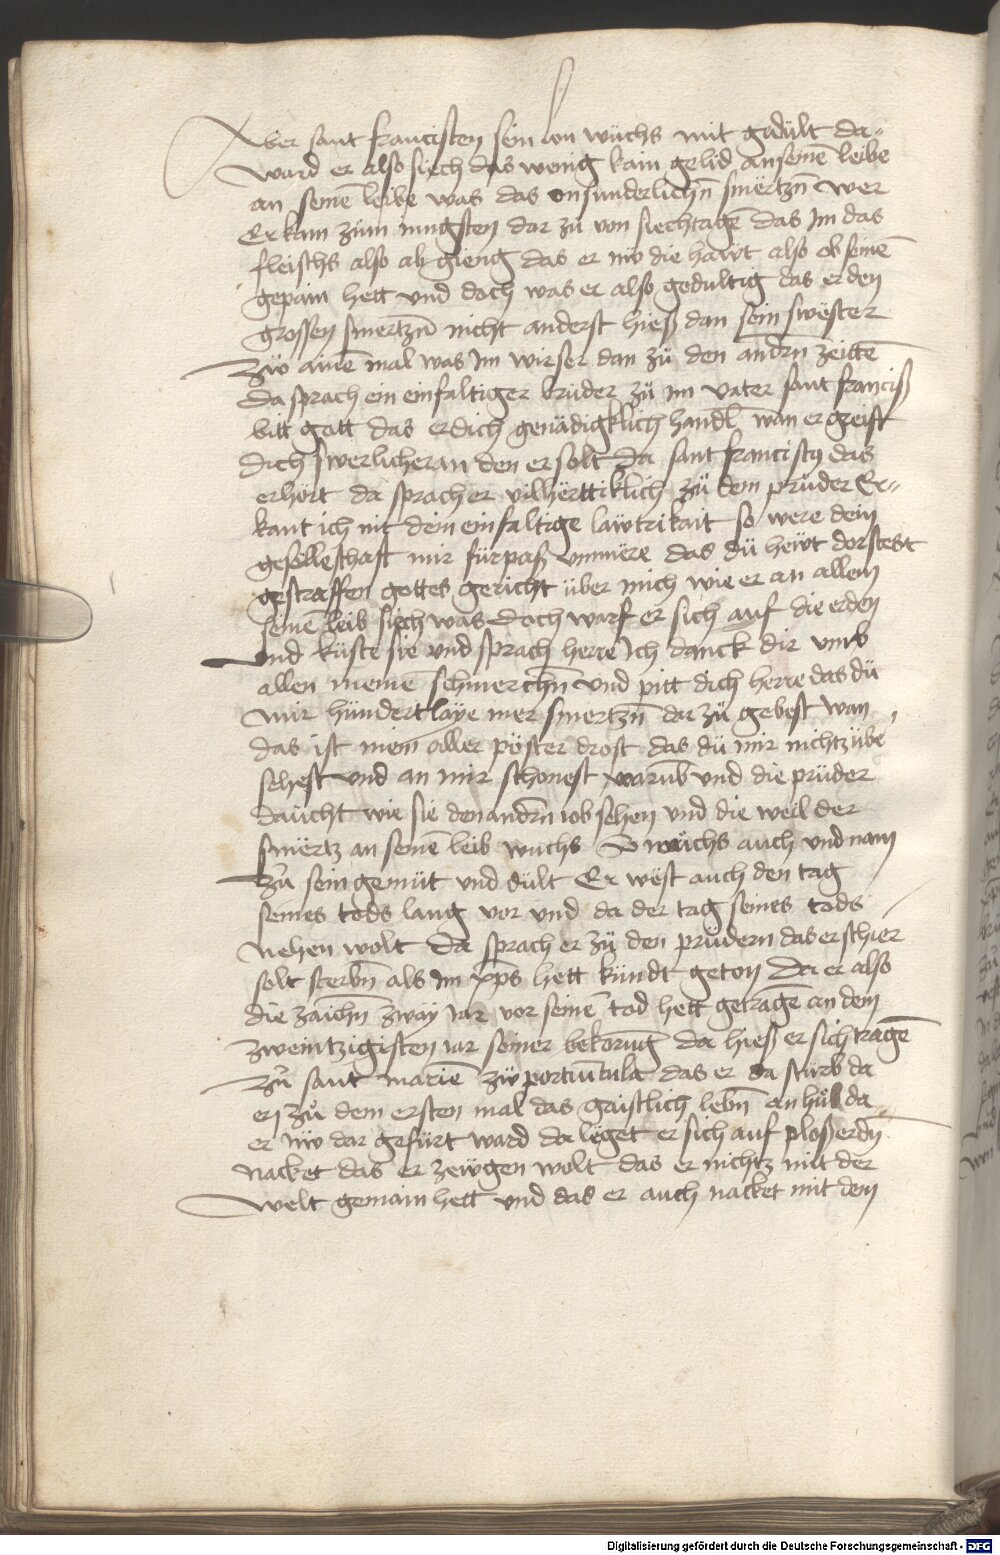 Aber sant francisten sein lon wüchs mit gedült da-
ward er also siech das wenig kain gelid an seinē leibe
an seinē leibe was das on sunderlichn̄ smërtzn̄ wer
Er kam zum iungsten dar zu von siechtagē das Im das
fleischs also ab gieng das er nw̄ die hawt also ob seinē
gepain hett und doch was er also gedultig das er den
grossen smertzn̄ nicht anderst hieß dan sein swëster
Zw ainē mal was Im wirser dan zu den andrn zeittē
Da sprach ein einfaltiger bruder zü im vater sant franciß
bitt gott das er dich genädigklich handl wan er greift
dich swerlicher an den er solt Da sant franciscus das
erhört da sprach er vilhërttiklich zü dem prüder Er-
kant ich nit dein einfaltige lawtrikait so were dein
geselleschaft mir fürpaß vnmëre das dü hewt dorstest
gestraffen gottes gericht über mich wie er an allem
seinē leib siech was doch warf er sich auf die erden
und küste sie und sprach herre Ich danck dir vmb
allen meinē schmerchn̄ und pitt dich herre das dü
mir hündert laye mer smertzn̄ da zü gebest wan
das ist mein aller pöster drost das dü mir nicht zübe
sehest und an mir schonest warūb und die prüder
daücht wie sie den andrn̄ iob sehen und die weil der
smërtz an seinē leib wuchs So wüchs auch und nam
Zu sein gemüt und dült Er wëst auch den tag
seines tods lang vor und da der tag seines tods
nehen wolt Da sprach er zü den prüdern das er schier
solt sterbn̄ als Im xp̄s hett kündt geton Da er also
die zaichn̄ zway iar vor seinē tod hett getragē an dem
zweintzigisten iar seiner bekorūg da hieß er sich tragē
Zu sant marie zw portiūtula das er da sturb da
er zu dem ersten mal das gaistlich lebn̄ an hub da
er nw̄ dar gefürt ward da leget er sich auf ploß erdn̄
nacket das er zewgen wolt das er nichtz mit der
welt gemain hett und das er auch nacket mit dem
Digitalisierung gefördert durch die Deutsche Forschungsgemeinschaft - DFG